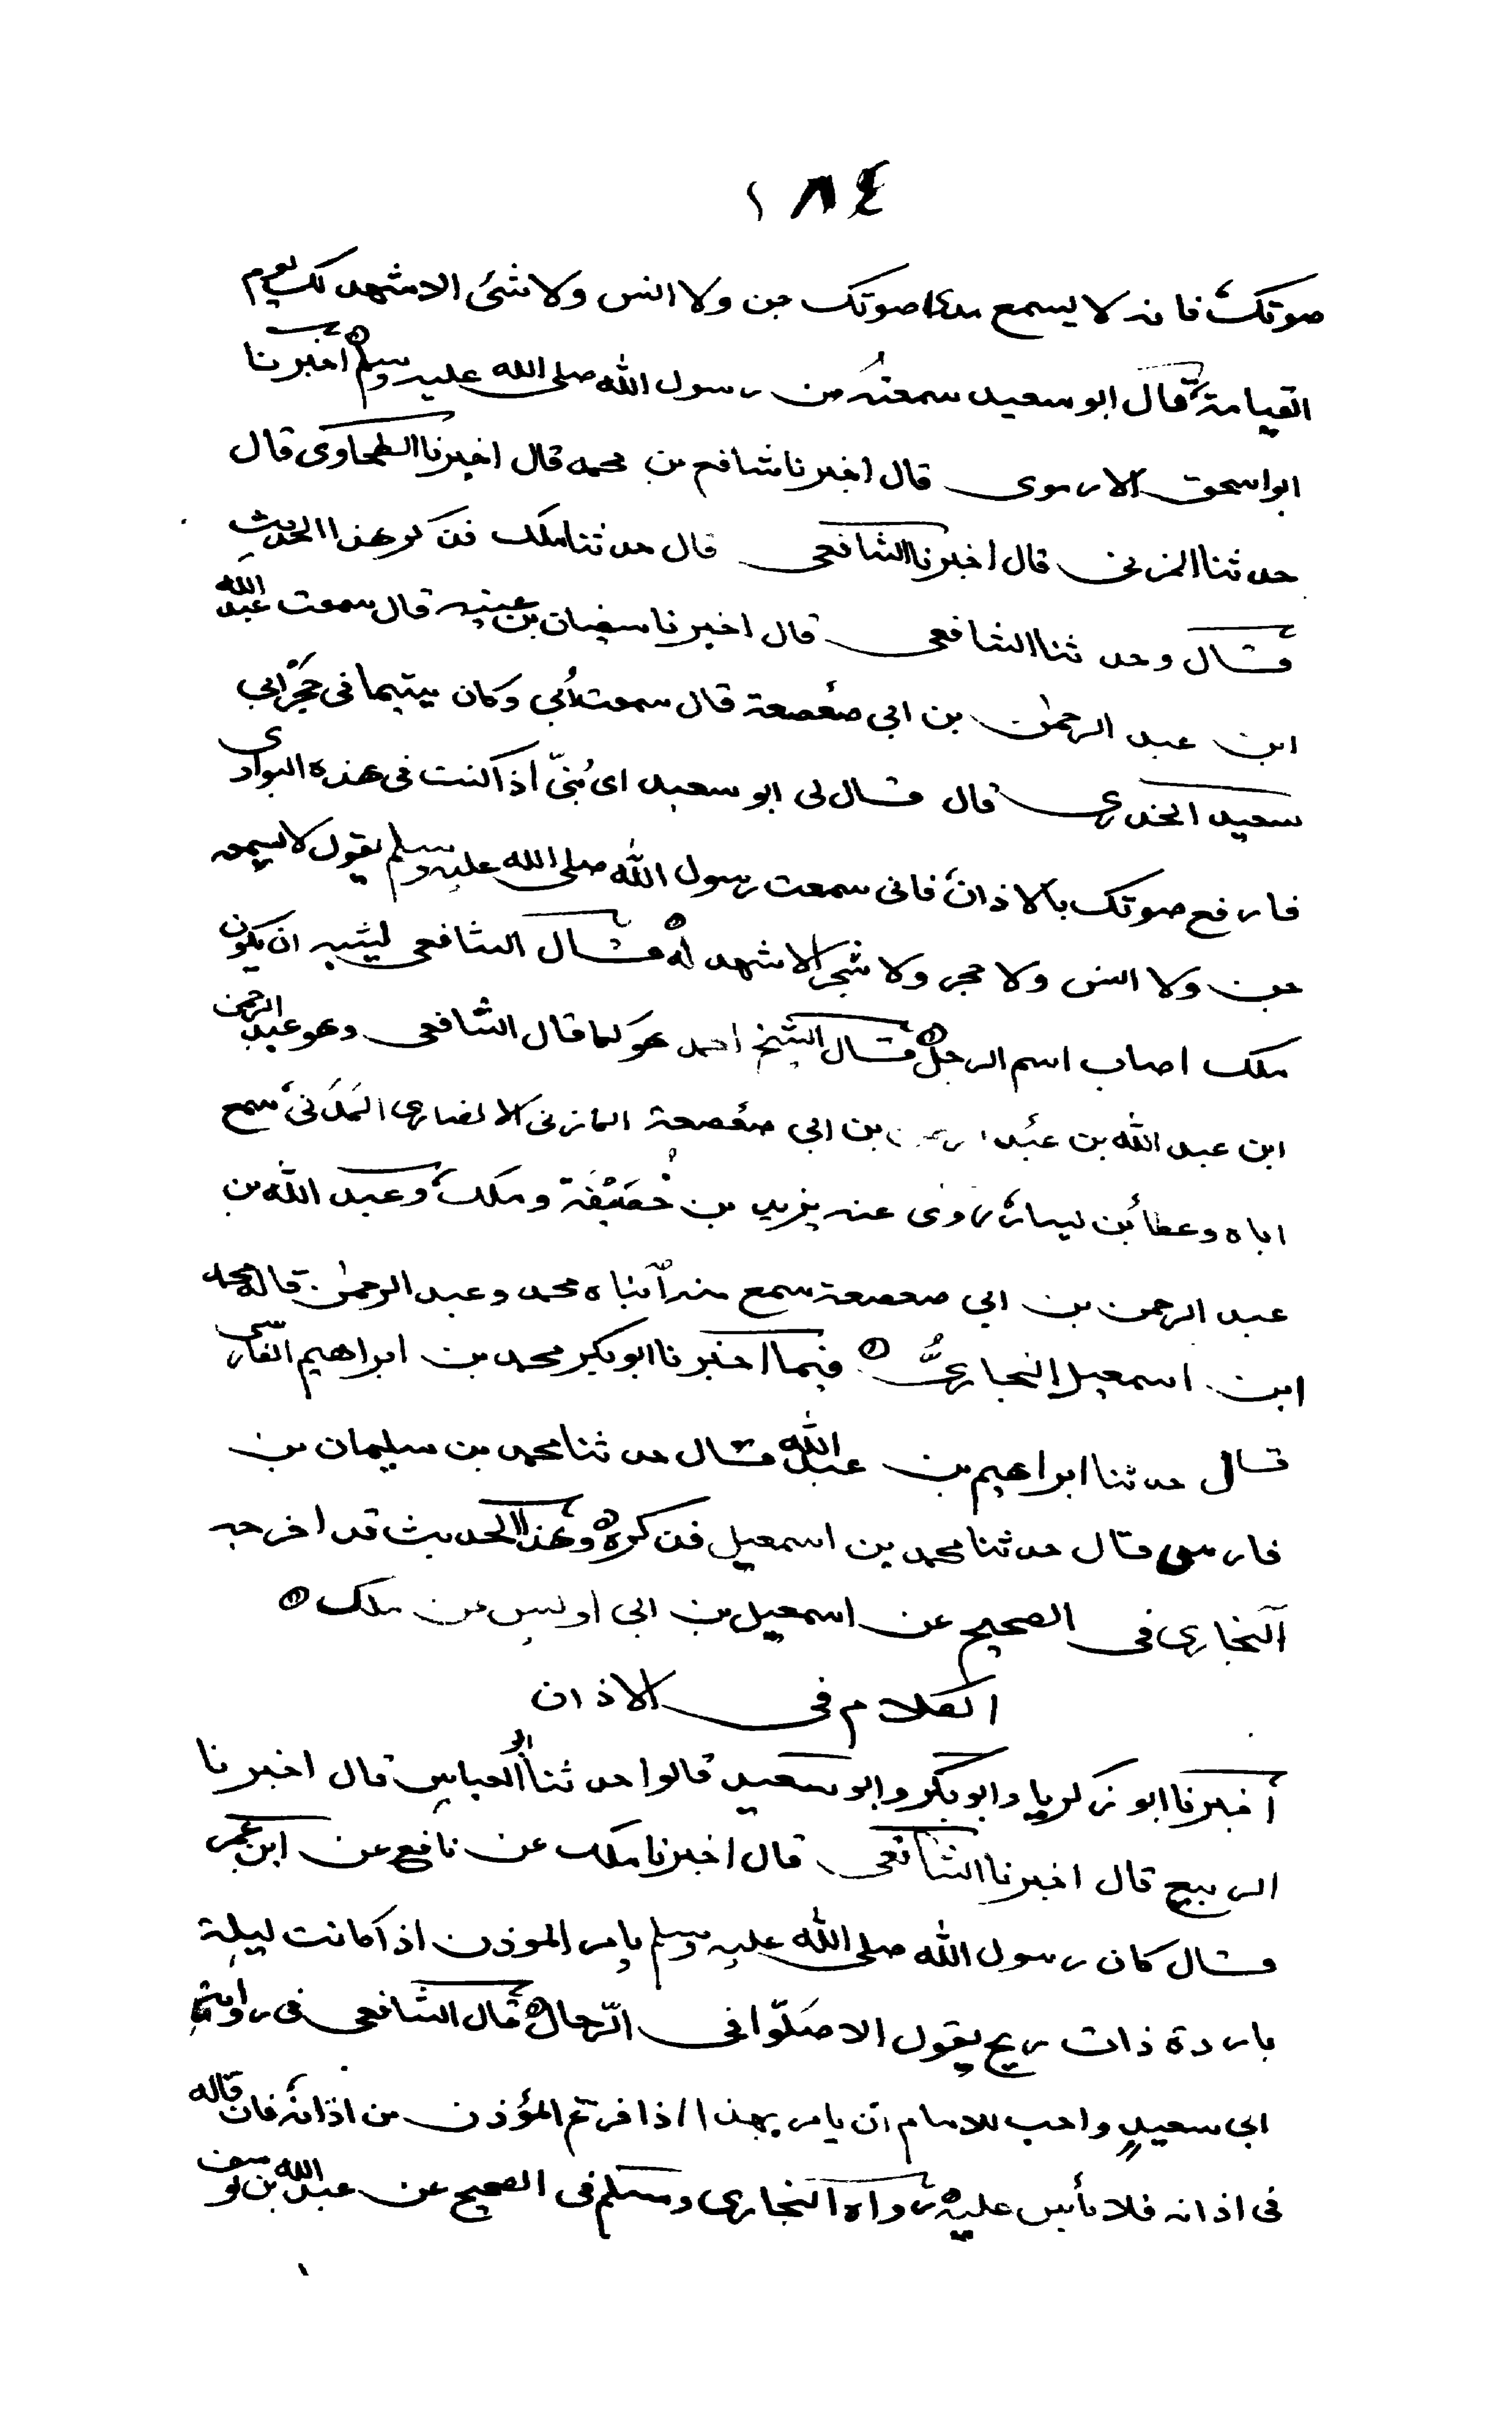 ١٨٤
صوتك فانه لا يسمع مدا صوتك جن ولا انس ولا شئ الا شهد لك يوم
القيامة قال ابو سعيد سمعته من رسول الله صلى الله عليه وسلم اخبرنا
ابو اسحق الارموى قال اخبرنا شافع بن محمد قال اخبرنا الطحاوى قال
حدثنا المزنى قال اخبرنا الشافعى قال حدثنا ملك فذكر هذا الحديث
قال وحدثنا الشافعى قال اخبرنا سفيان بن عيينه قال سمعت عبد الله
ابن عبد الرحمن بن ابي صعصعة قال سمعت أبي وكان يتيما فى حجر ابي
سعيد الخدرى قال قال لى ابو سعيد اى بُنىّ اذا كنت فى هذه البوادى
فارفع صوتك بالاذان فانى سمعت رسول الله صلى الله عليه وسلم يقول لا يسمعه
جن ولا انس ولا حجر ولا شجر الا شهد له قال الشافعى ليشبه ان يكون
ملك اصاب اسم الرجل قال الشيخ احمد هو كما قال الشافعى وهو عبد الرحمن
ابن عبد الله بن عبد الرحمن بن ابي صعصعة المازنى الانصارى المدنى سمع
اباه وعطا بن يسار روى عنه يزيد بن خصيفة وملك وعبد الله بن
عبد الرحمن بن ابي صعصعة سمع منه ابناه محمد وعبد الرحمن قاله محمد
ابن اسمعيل البخارىُّ فيما اخبرنا ابو بكر محمد بن ابراهيم الفارسى
قال حدثنا ابراهيم بن عبد الله قال حدثنا محمد بن سليمان بن
فارس قال حدثنا محمد بن اسمعيل فذكره وهذا الحديث قد اخرجه
البخارى فى الصحيح عن اسمعيل بن ابى اويس عن ملك
الكلام فى الاذان
أخبرنا ابو زكريا وابو بكر وابو سعيد قالوا حدثنا ابو العباس قال اخبرنا
الربيع قال اخبرنا الشافعى قال اخبرنا ملك عن نافع عن ابن عمر
قال كان رسول الله صلى الله عليه وسلم يامر الموذن اذا كانت ليلة
باردة ذات ريح يقول الا صَلّوا فى الرّحال قال الشافعى فى رواية
ابى سعيدٍ واحب للامام ان يامر بهذا اذا فرغ المؤذن من اذانه فان قاله
فى اذانه فلا بأس عليه رواه البخارى ومسلم فى الصحيح عن عبد الله بن يوسف